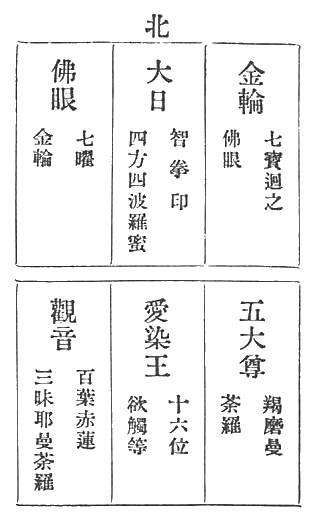 北
金輪
七寶迴之
佛眼
大日
智拳印
四方四波羅蜜
佛眼
七曜
金輪
五大尊
羯磨曼
荼羅
愛染王
十六位
欲觸等
觀音
百葉赤蓮
三昧耶曼荼羅